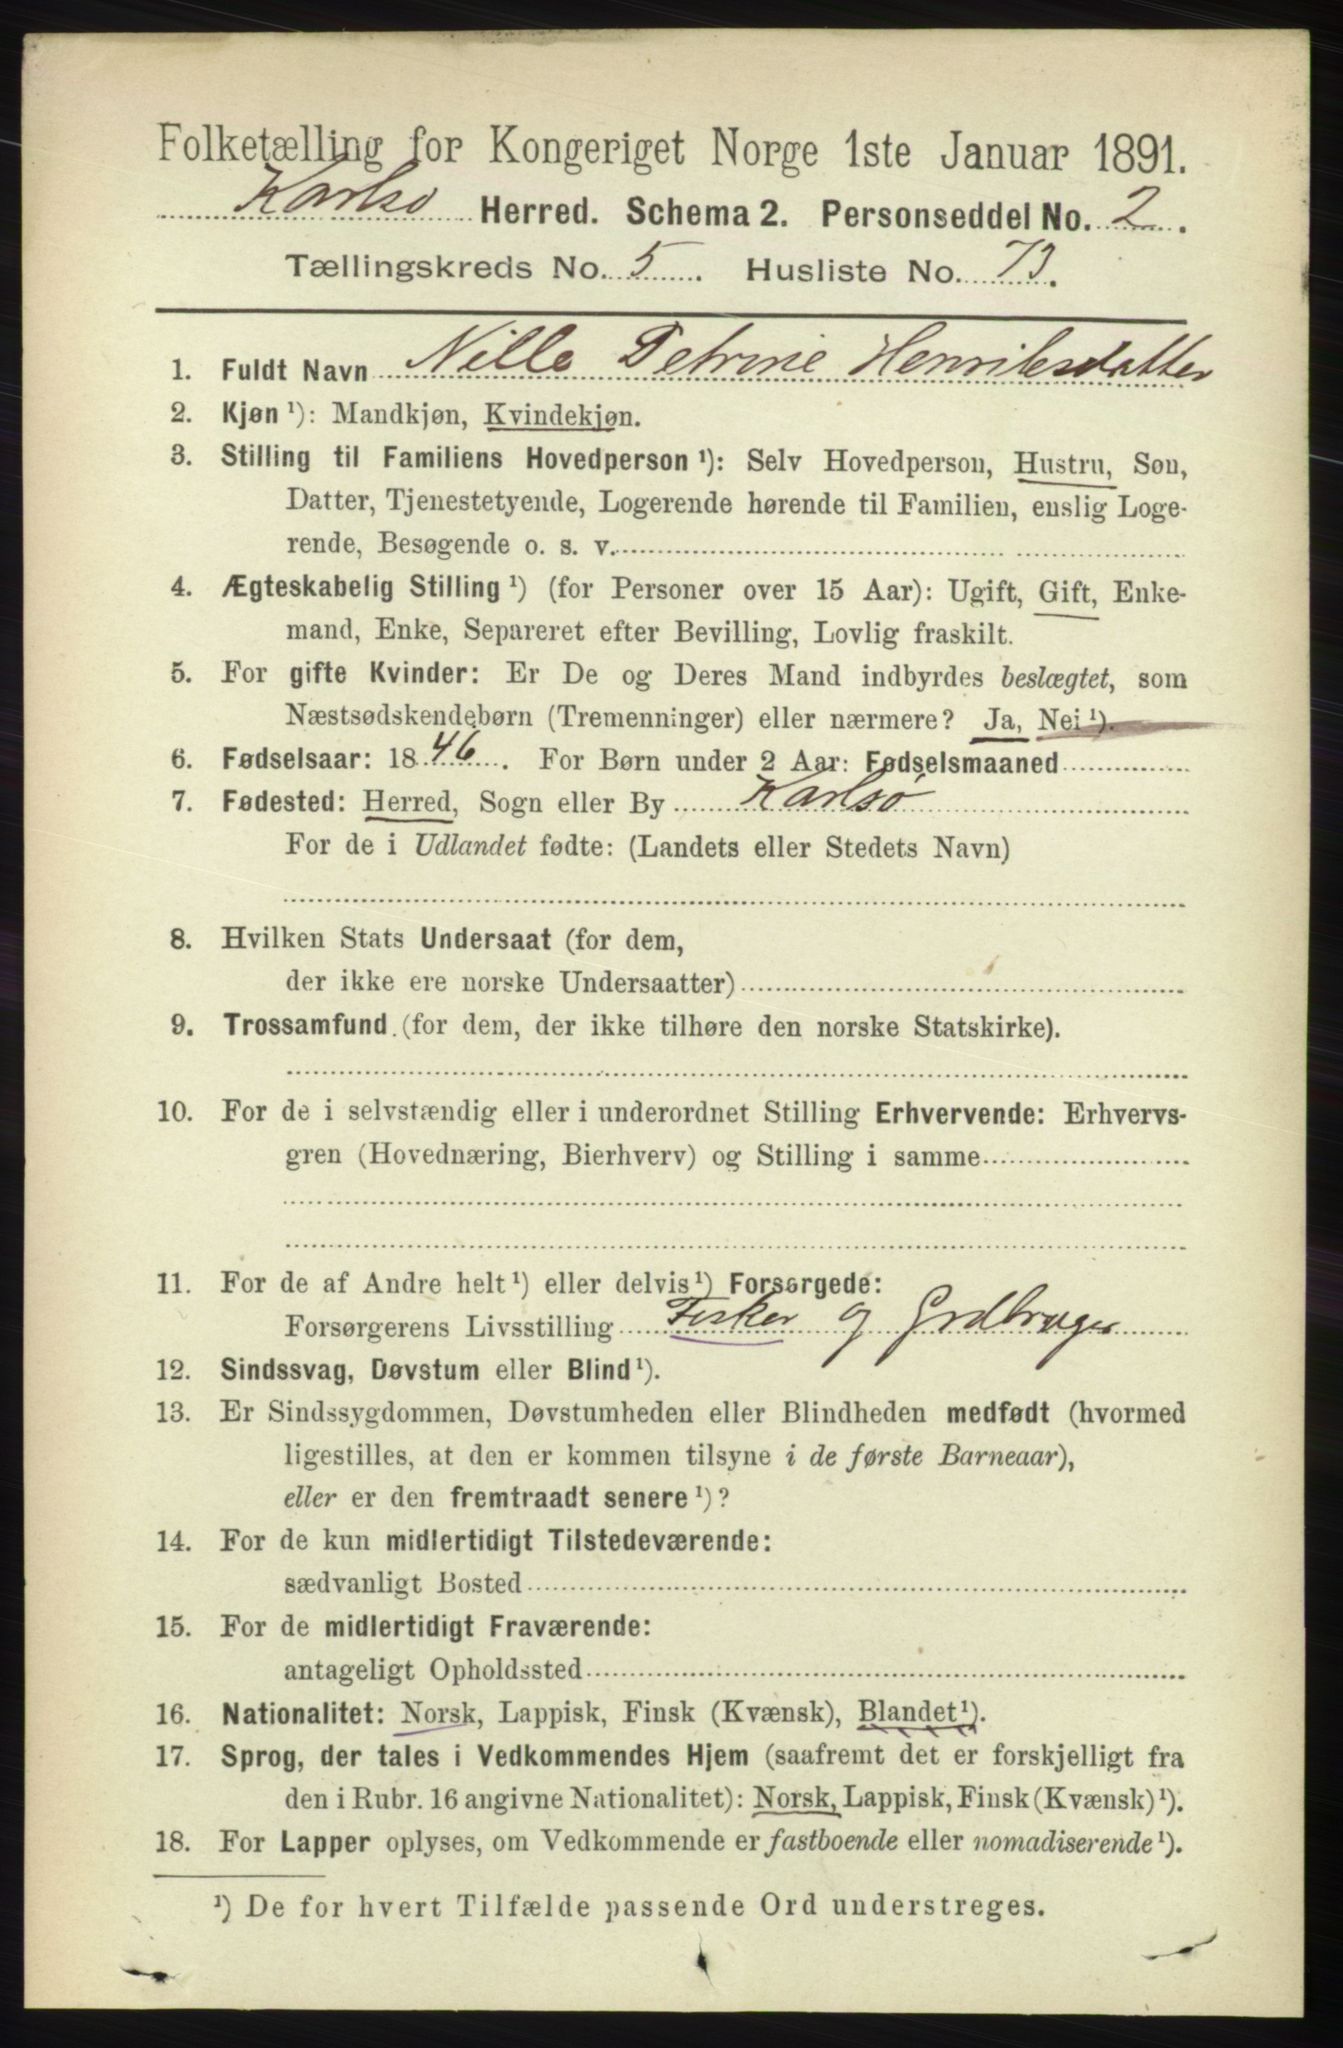 Folketælling for Kongeriget Norge 1ste Januar 1891.
Karlsø Herred. Schema 2. Personseddel No. 2.
Tællingskreds No. 5. Husliste No. 73.
1. Fuldt Navn Nille Petrine Henriksdatter
2. Kjøn ¹): Mandkjøn, Kvindekjøn.
3. Stilling til Familiens Hovedperson ¹): Selv Hovedperson, Hustru, Søn,
Datter, Tjenestetyende, Logerende hørende til Familien, enslig Loge-
rende, Besøgende o. s. v.
4. Ægteskabelig Stilling ¹) (for Personer over 15 Aar): Ugift, Gift, Enke-
mand, Enke, Separeret efter Bevilling, Lovlig fraskilt.
5. For gifte Kvinder: Er De og Deres Mand indbyrdes beslægtet, som
Næstsødskendebørn (Tremenninger) eller nærmere? Ja, Nei ¹).
6. Fødselsaar: 1846. For Børn under 2 Aar: Fødselsmaaned
7. Fødested: Herred, Sogn eller By Karlsø
For de i Udlandet fødte: (Landets eller Stedets Navn)
8. Hvilken Stats Undersaat (for dem,
der ikke ere norske Undersaatter)
9. Trossamfund (for dem, der ikke tilhøre den norske Statskirke).
10. For de i selvstændig eller i underordnet Stilling Erhvervende: Erhvervs-
gren (Hovednæring, Bierhverv) og Stilling i samme
11. For de af Andre helt ¹) eller delvis ¹) Forsørgede:
Forsørgerens Livsstilling Fisker og Jordbruger
12. Sindssvag, Døvstum eller Blind ¹).
13. Er Sindssygdommen, Døvstumheden eller Blindheden medfødt (hvormed
ligestilles, at den er kommen tilsyne i de første Barneaar),
eller er den fremtraadt senere ¹)?
14. For de kun midlertidigt Tilstedeværende:
sædvanligt Bosted
15. For de midlertidigt Fraværende:
antageligt Opholdssted
16. Nationalitet: Norsk, Lappisk, Finsk (Kvænsk), Blandet ¹).
17. Sprog, der tales i Vedkommendes Hjem (saafremt det er forskjelligt fra
den i Rubr. 16 angivne Nationalitet): Norsk, Lappisk, Finsk (Kvænsk) ¹).
18. For Lapper oplyses, om Vedkommende er fastboende eller nomadiserende ¹).
¹) De for hvert Tilfælde passende Ord understreges.